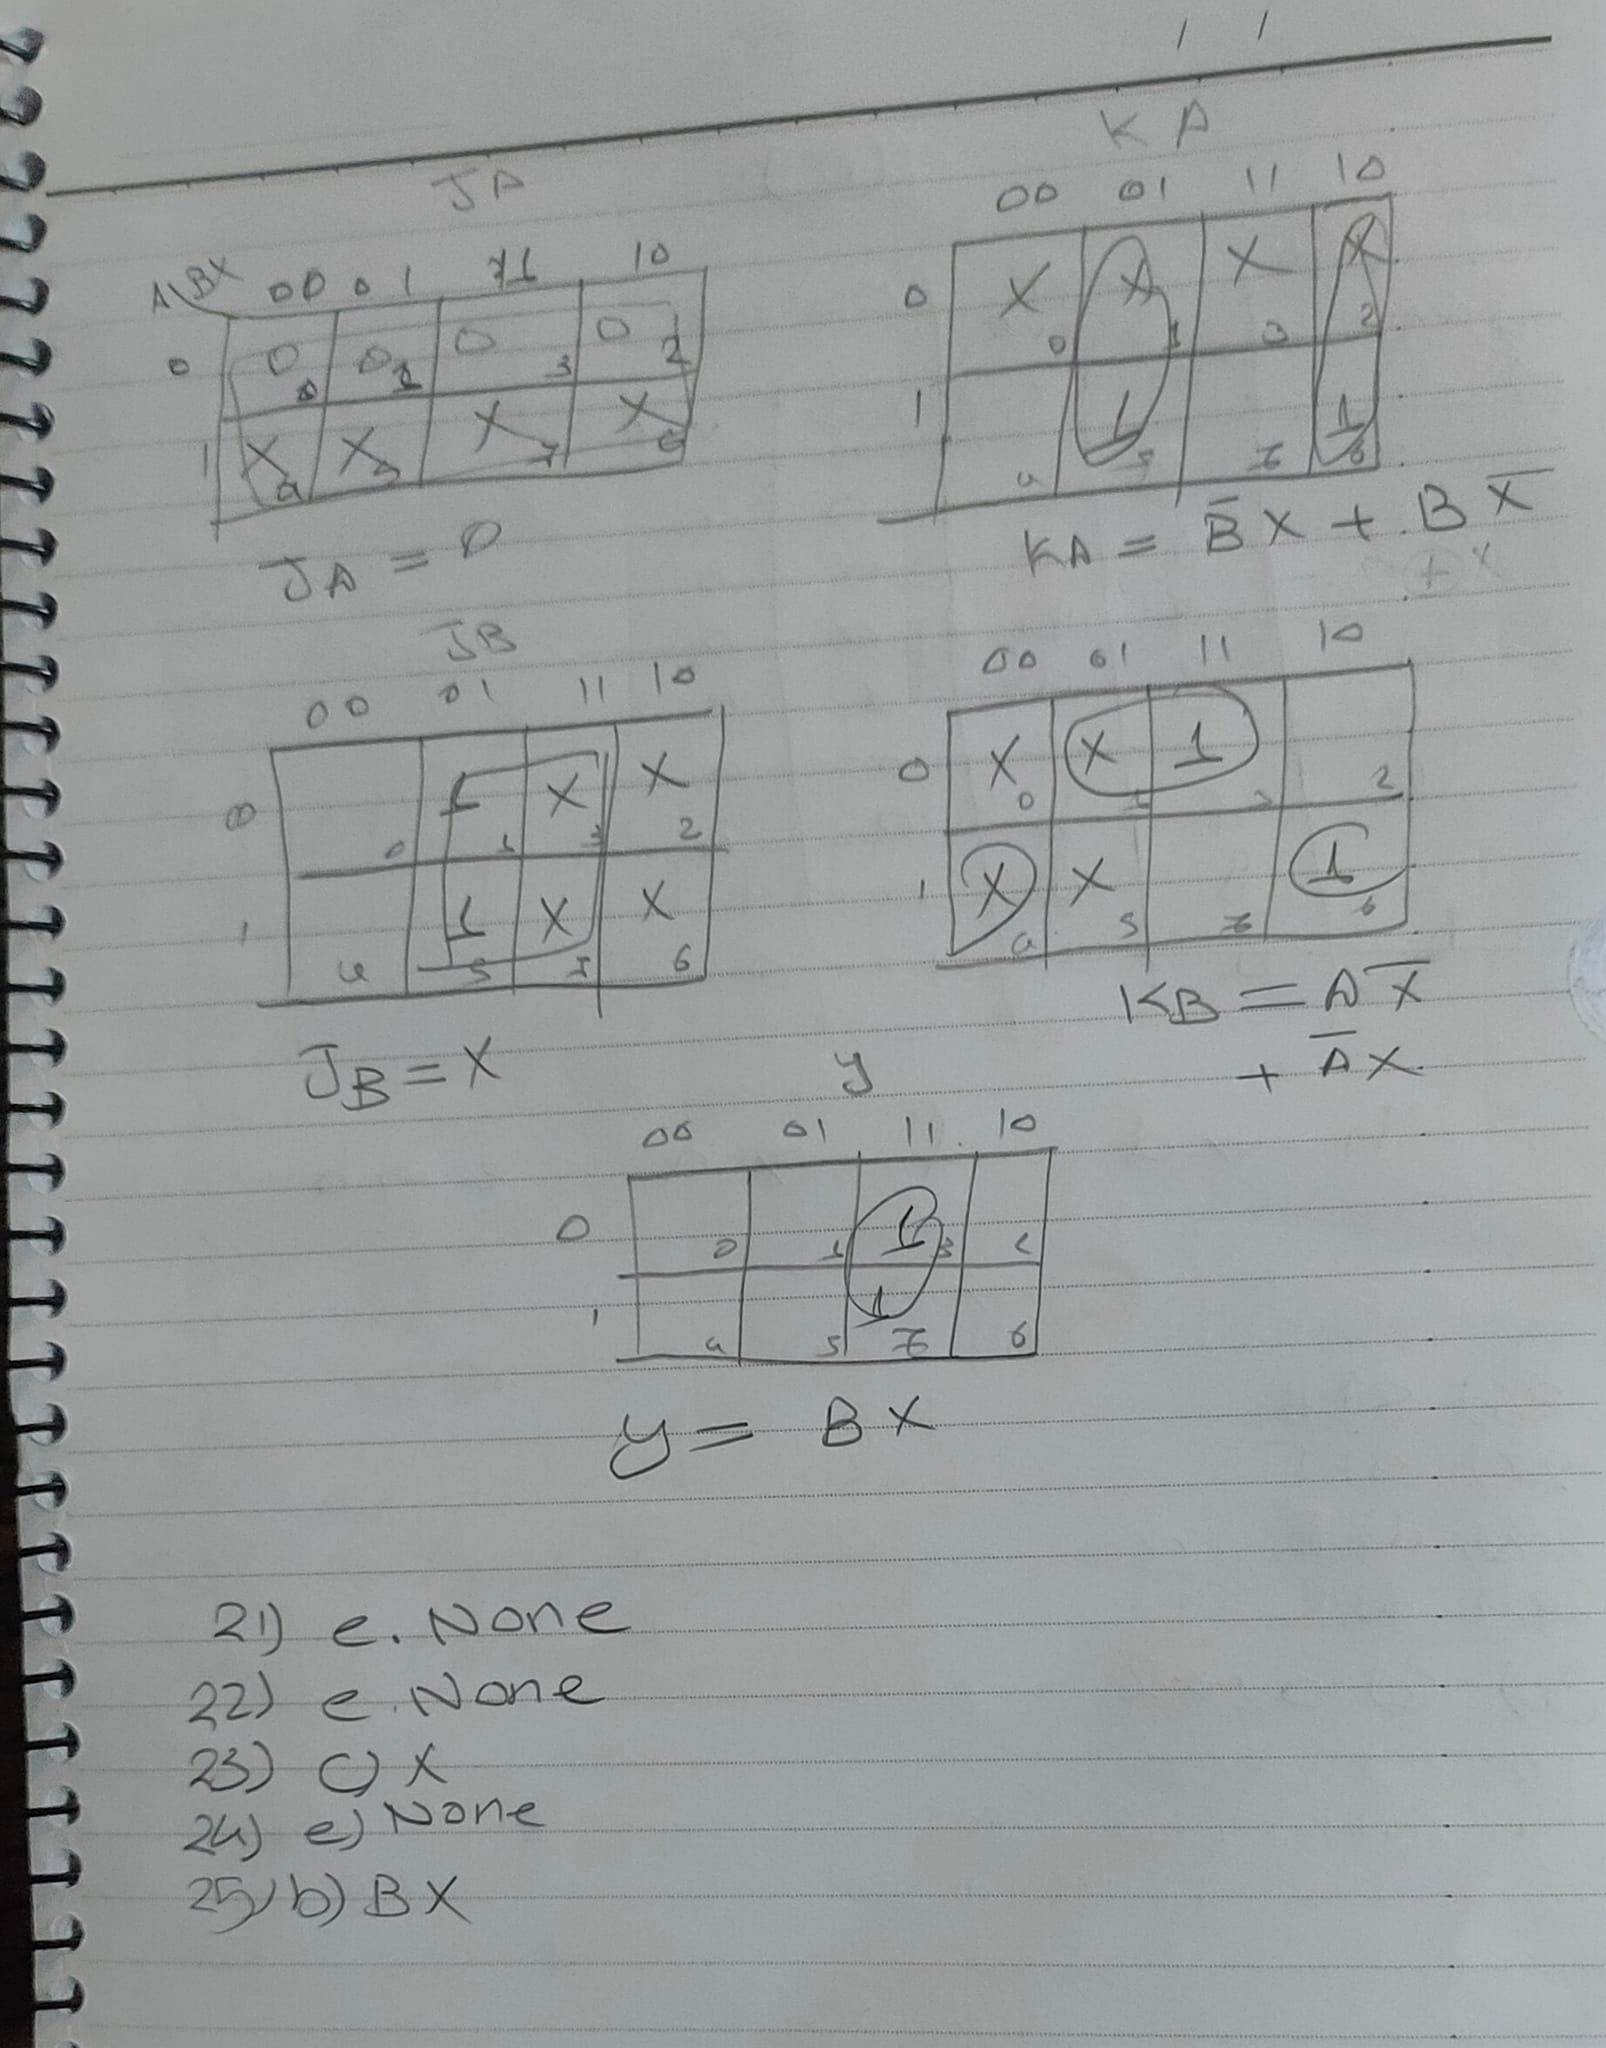 / /
JA
A\BX 00 01 11 10
0 0 0 0 1 0 3 0 2
1 X 4 X 5 X 7 X 6
JA = 0
KA
00 01 11 10
0 X 0 X 1 X 3 X 2
1 4 1 5 7 1 6
KA = B̅ X + B X̅
+ X
JB
00 01 11 10
0 0 1 1 X 3 X 2
1 4 1 5 X 7 X 6
JB = X
00 01 11 10
0 X 0 X 1 1 3 2
1 X 4 X 5 7 1 6
KB = A X̅
+ A̅ X
y
00 01 11 10
0 0 1 1 3 2
1 4 5 1 7 6
y = BX
21) e. None
22) e. None
23) c) X
24) e) None
25) b) BX